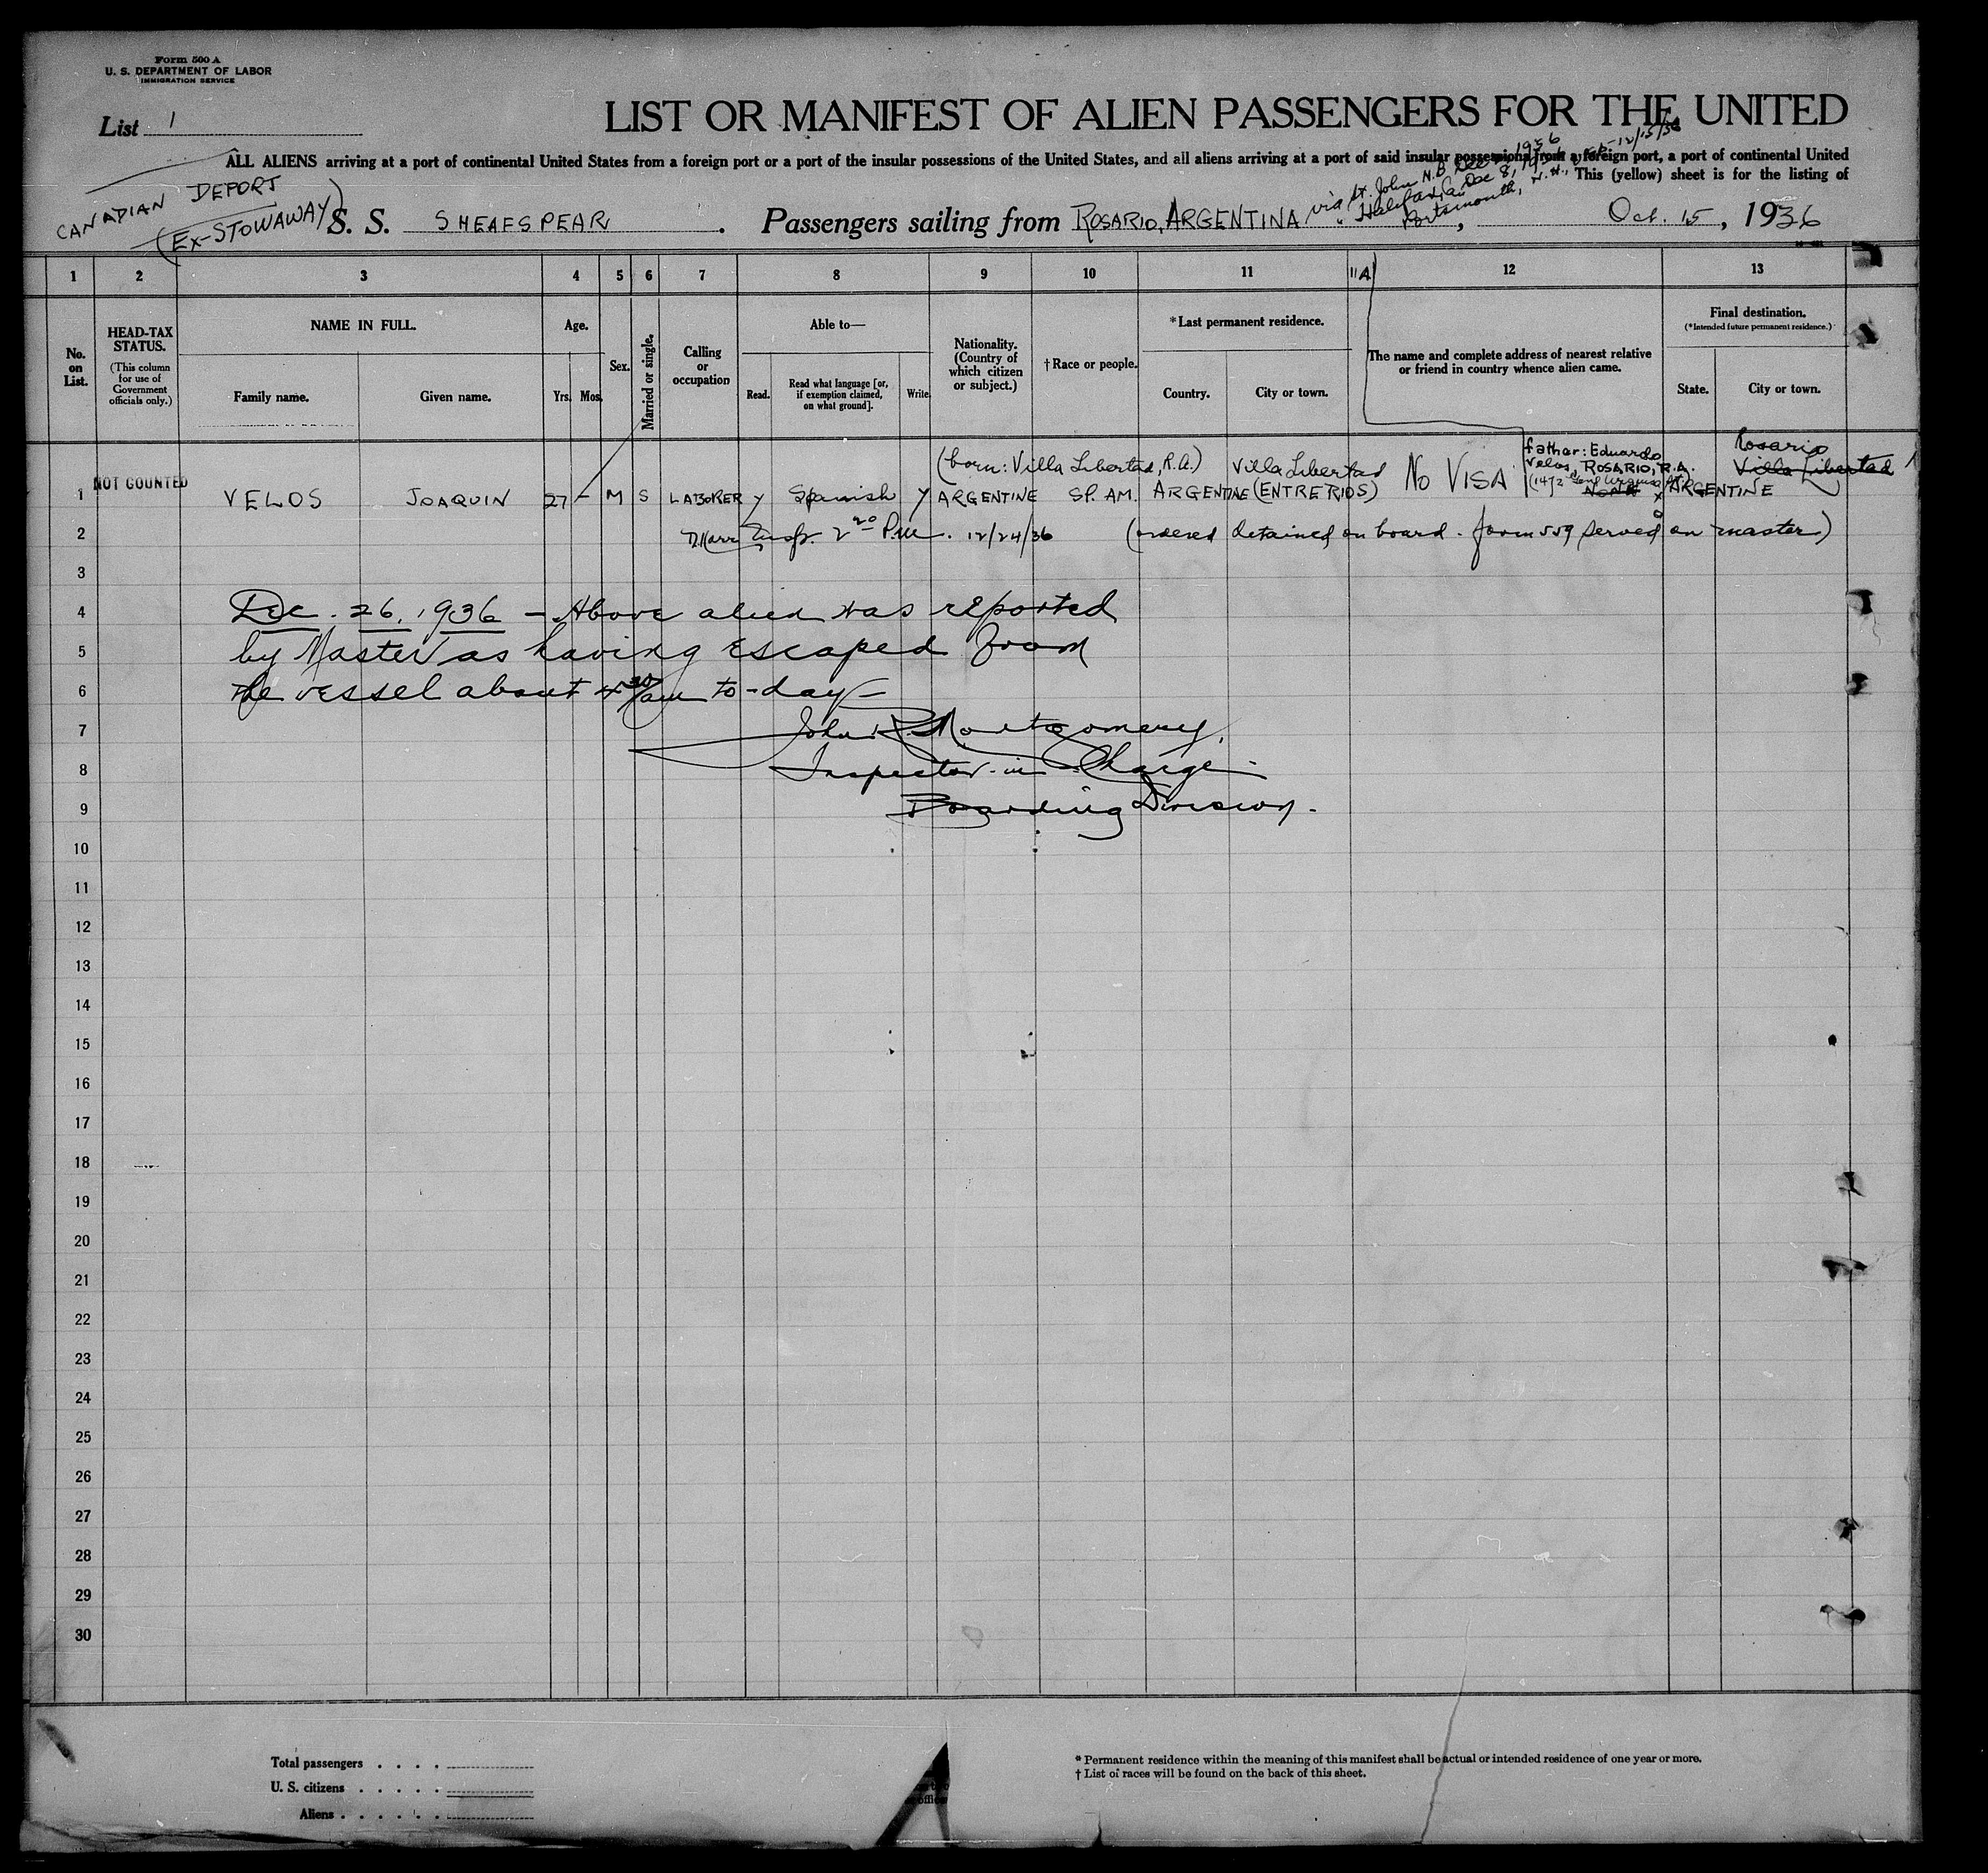 Form 500 A
U. S. DEPARTMENT OF LABOR
IMMIGRATION SERVICE
List 1
LIST OR MANIFEST OF ALIEN PASSENGERS FOR THE UNITED
ALL ALIENS arriving at a port of continental United States from a foreign port or a port of the insular possessions of the United States, and all aliens arriving at a port of said insular possessions from a foreign port, a port of continental United
This (yellow) sheet is for the listing of
CANADIAN DEPORT
(EX-STOWAWAY)
S. S. SHEAFSPEAR . Passengers sailing from ROSARIO, ARGENTINA , Oct. 15 , 1936
via St. John N.B. Dec 1936
" Halifax, Can Dec 8, 1936
Portsmouth, N.H., 12/15/36
1 2 3 4 5 6 7 8 9 10 11 11A 12 13
No. on List.
HEAD-TAX STATUS.
(This column for use of Government officials only.)
NAME IN FULL.
Family name. Given name.
Age.
Yrs. Mos.
Sex.
Married or single.
Calling or occupation
Able to—
Read. Read what language [or, if exemption claimed, on what ground]. Write.
Nationality. (Country of which citizen or subject.)
† Race or people.
*Last permanent residence.
Country. City or town.
The name and complete address of nearest relative or friend in country whence alien came.
Final destination.
(*Intended future permanent residence.)
State. City or town.
(born: Villa Libertad, R.A.) Villa Libertad father: Eduardo Rosario
Velos, ROSARIO, R.A. Villa Libertad
NOT COUNTED
1 VELOS JOAQUIN 27 – M S LABORER Y Spanish Y ARGENTINE SP. AM. ARGENTINE (ENTRE RIOS) No VISA NONE ARGENTINE
2 Insp. 2nd P.M. 12/24/36 (ordered detained on board. form 559 served on master)
3
4 Dec. 26, 1936 – Above alien was reported
5 by Master as having escaped from
6 the vessel about 4 30 am to-day –
7 John R. Montgomery,
8 Inspector-in-Charge
9 Boarding Division.
10
11
12
13
14
15
16
17
18
19
20
21
22
23
24
25
26
27
28
29
30
Total passengers . . . .
U. S. citizens . . . . .
Aliens . . . . . .
* Permanent residence within the meaning of this manifest shall be actual or intended residence of one year or more.
† List of races will be found on the back of this sheet.